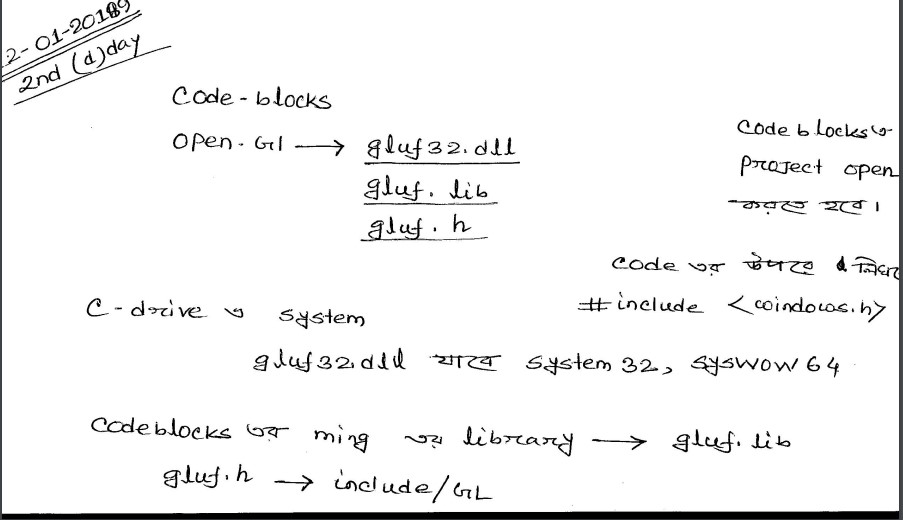 2-01-2019
2nd (d) day
Code-blocks
Open-Gl → gluf32.dll
gluf.lib
gluf.h
Code blocks এ
Project open
করতে হবে।
Code এর উপরে
#include <windows.h>
C-drive এ system
gluf32.dll যাবে System 32, syswow 64
Codeblocks এর ming এর library → gluf.lib
gluf.h → include/GL